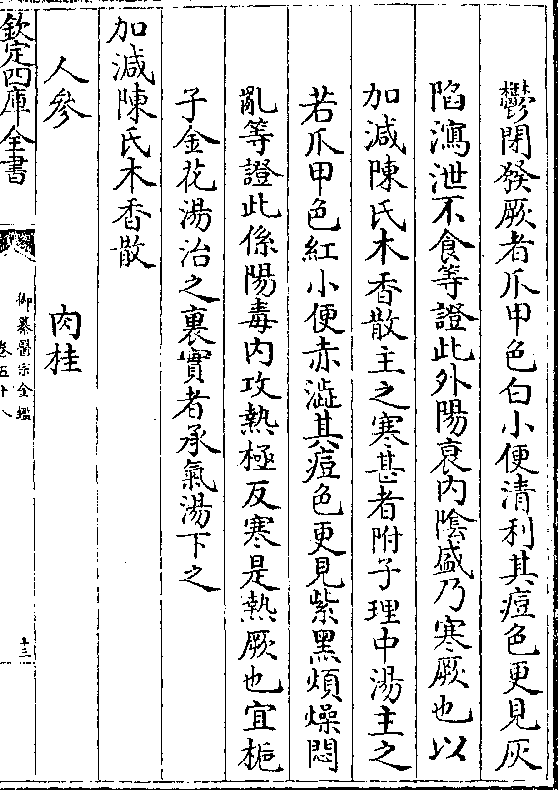 鬱閉發厥者爪甲色白小便清利其痘色更見灰
陷瀉泄不食等證此外陽衰内陰盛乃寒厥也以
加減陳氏木香散主之寒甚者附子理中湯主之
若爪甲色紅小便赤澁其痘色更見紫黑煩燥悶
亂等證此係陽毒内攻熱極反寒是熱厥也宜梔
子金花湯治之裏實者承氣湯下之
加減陳氏木香散
人參　肉桂
欽定四庫全書
御纂醫宗金鑑
卷五十八
十三